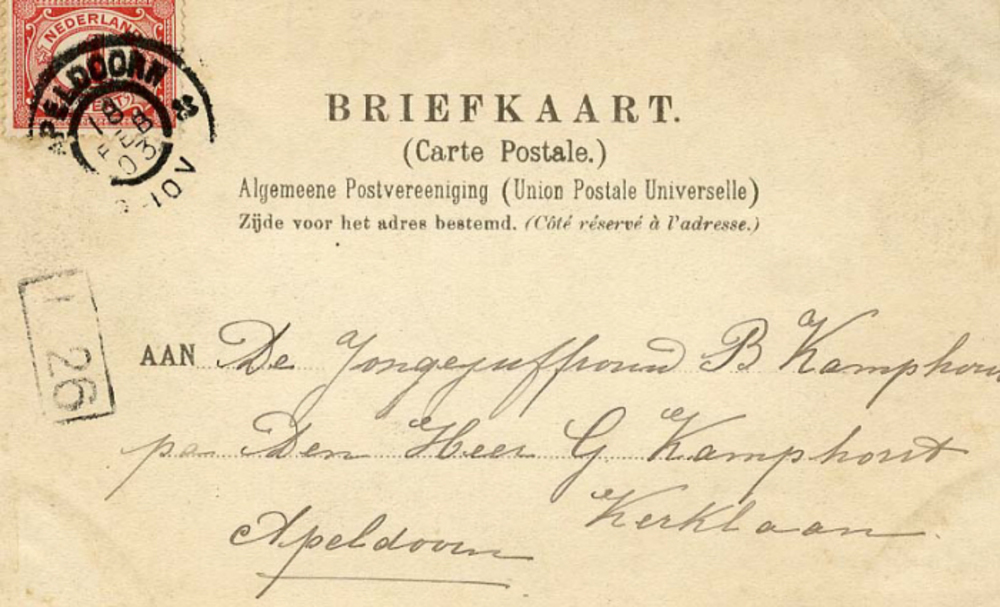 NEDERLAND
1
CENT
APELDOORN
18
FEB
03
10V
BRIEFKAART.
(Carte Postale.)
Algemeene Postvereeniging (Union Postale Universelle)
Zijde voor het adres bestemd. (Côté réservé à l'adresse.)
26
AAN De Jongejuffrouw B Kamphou
pa Den Heer G. Kamphout
Kerklaan
Apeldoorn